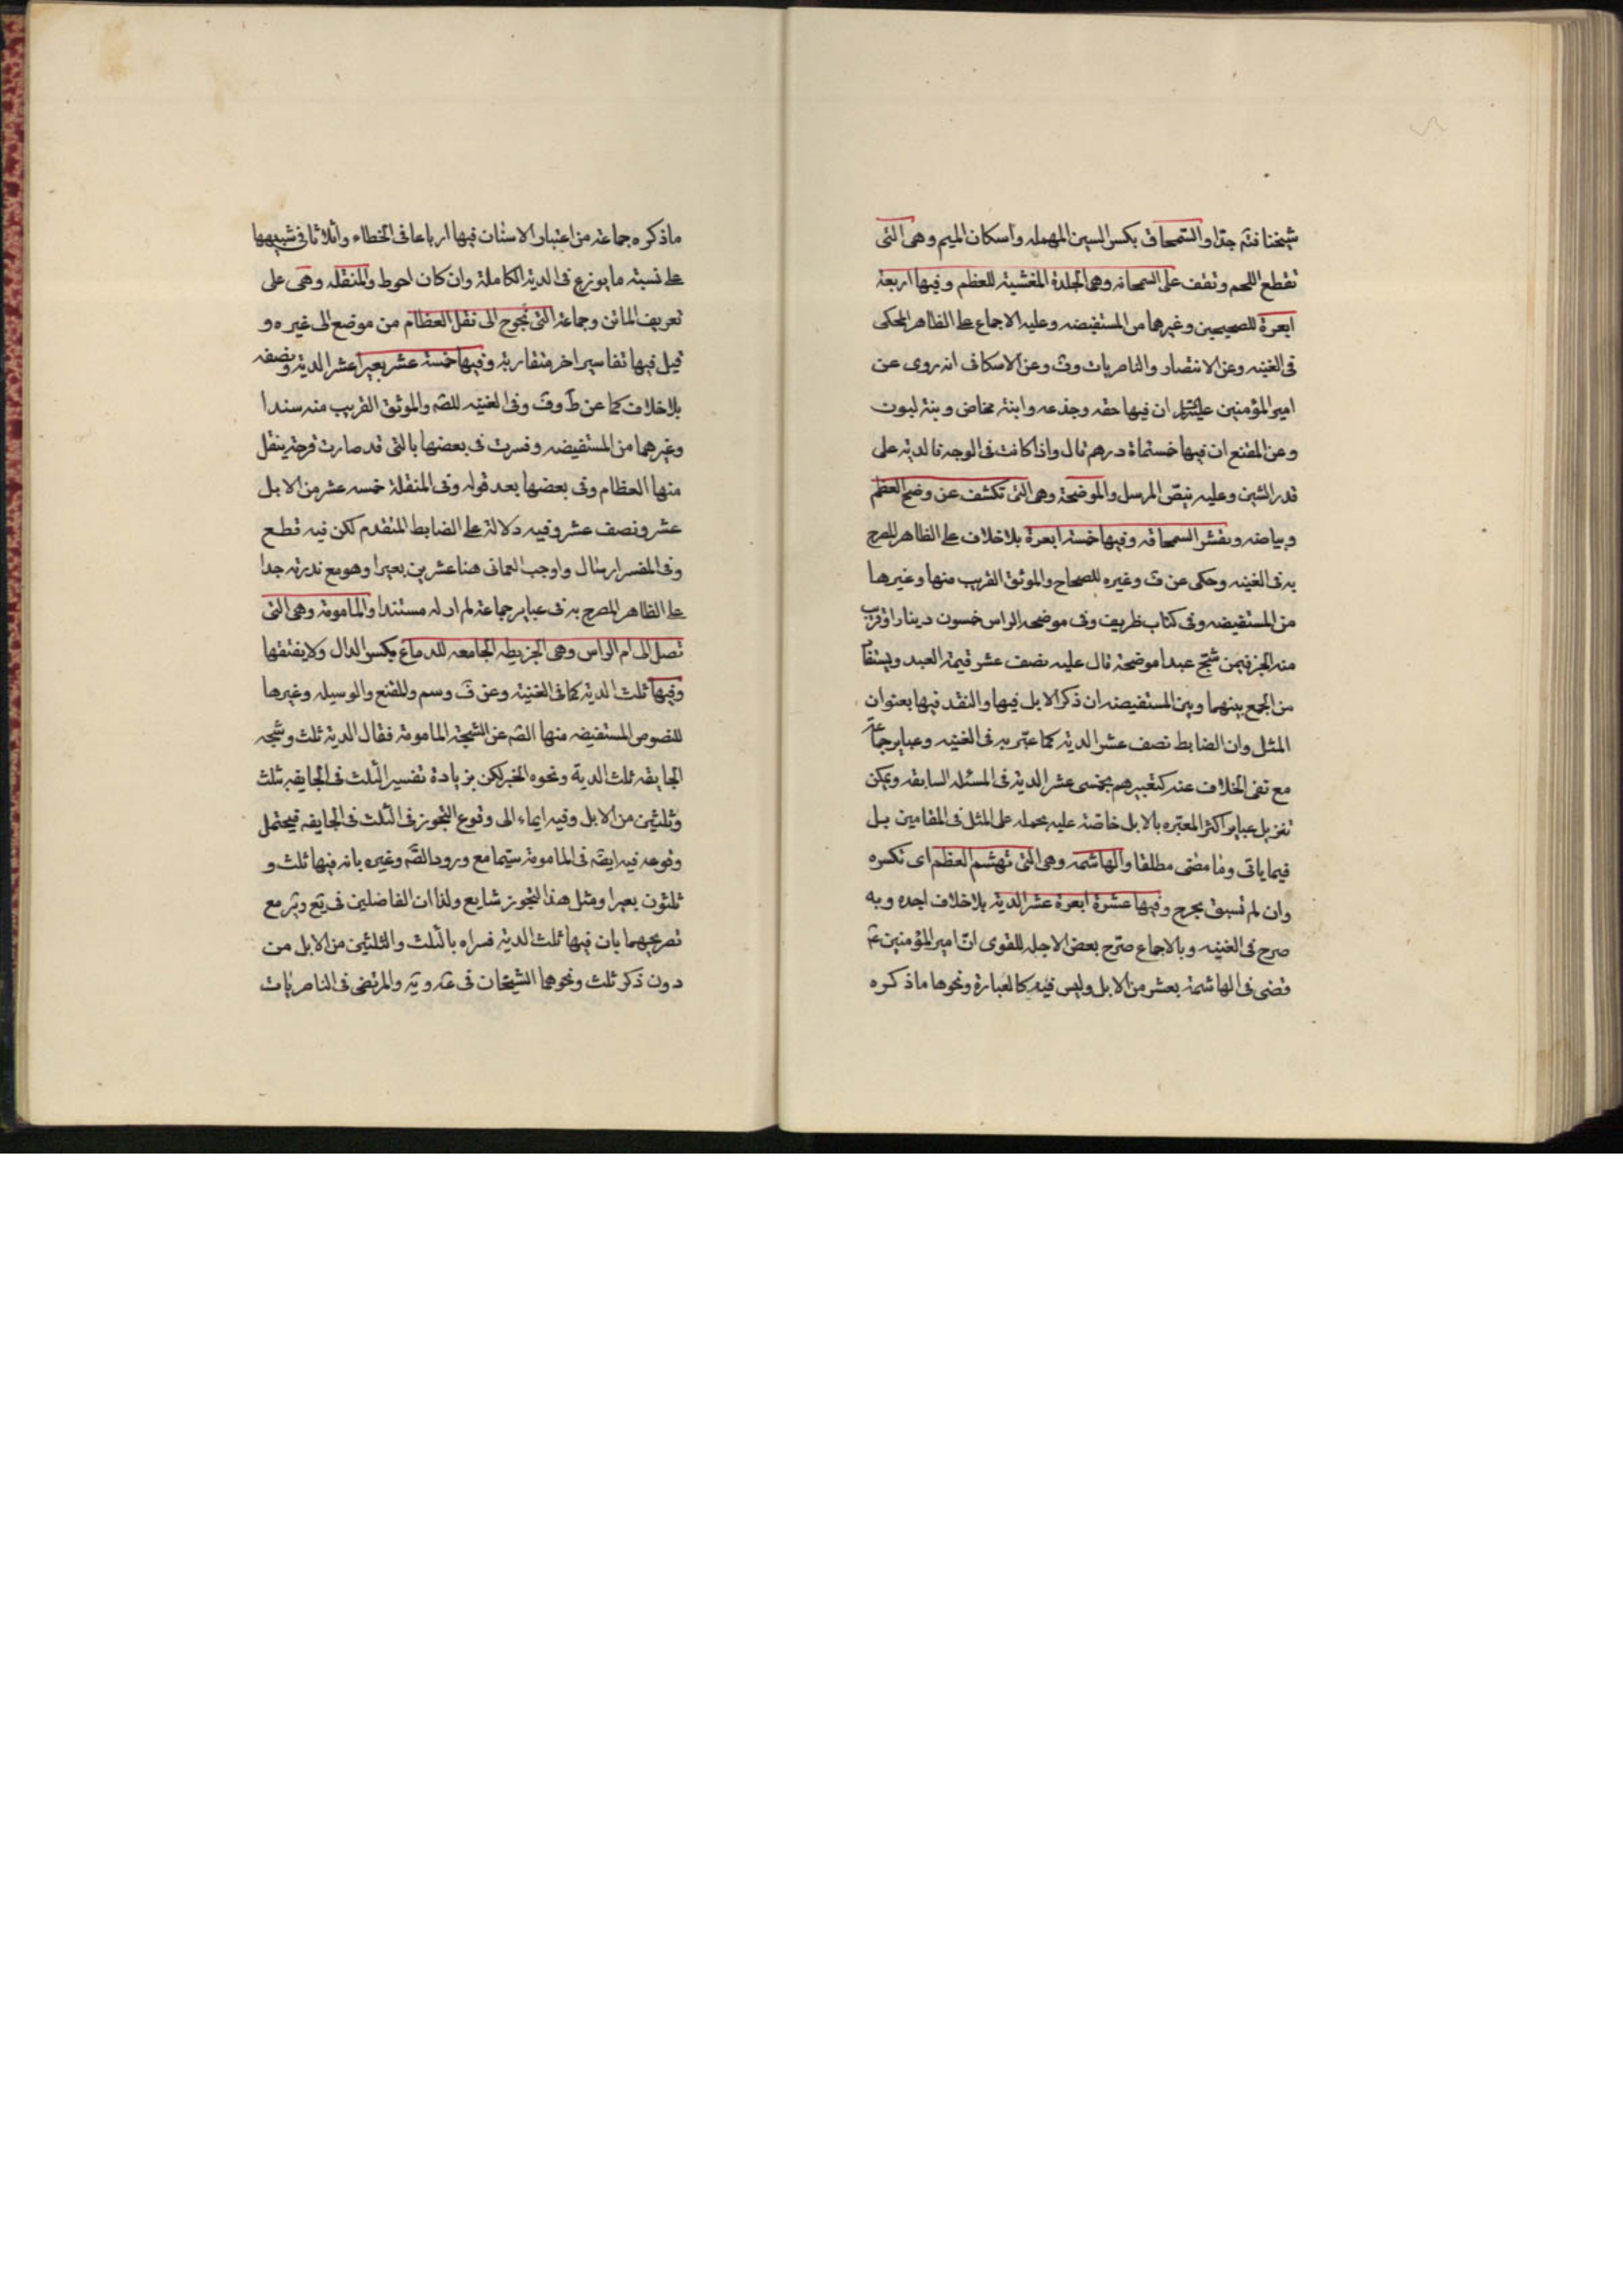 شيخنا فتم جدا والسمحاق بكسر السين المهمله واسكان الميم وهى التى
تقطع اللحم وتقف على السمحاقه وهى الجلدة المغشية للعظم وفيها اربعة
ابعرة للصحيحين وغيرهما من المستفيضه وعليه الاجماع على الظاهر المحكى
فى الغنيه وعن الانتصار والناصريات وف وعن الاسكاف انه روى عن
امير المؤمنين ان فيها حقه وجذعه وابنة مخاض وبنة لبون
وعن المقنع ان فيها خمسماة درهم قال واذا كانت فى الوجه فالديه على
قدر الشين وعليه بنص المرسل والموضحة وهى التى تكشف عن وضح العظم
وبياضه وبقشر السمحاقه وفيها خمسة ابعرة بلا خلاف على الظاهر المصرح
به فى الغنيه وحكى عن ف وغيره للصحاح والموثق القريب منها وغيرها
من المستفيضه وفى كتاب ظريف وفى موضحه الراس خمسون دينارا وقريب
منه الخبر فيمن شج عبدا موضحة قال عليه نصف عشر قيمة العبد ويستفا
من الجمع بينهما وبين المستفيضه ان ذكر الابل فيها والنقد فيها بعنوان
المثل وان الضابط نصف عشر الديه كما عبر به فى الغنيه وعباير جماعة
مع نفى الخلاف عنه كتعبيرهم بخمسى عشر الديه فى المسئله السابقه ويمكن
تنزيل عباير اكثر المعتبره بالابل خاصة عليه بحمله على المثل فى المقامين بل
فيما ياتى وما مضى مطلقا والهاشمه وهى التى تهشم العظم اى تكسره
وان لم تسبق بجرح وفيها عشرة ابعرة عشر الديه بلا خلاف اجده وبه
صرح فى الغنيه وبالاجماع صرح بعض الاجله للقوى ان امير المؤمنين ع
قضى فى الهاشمة بعشر من الابل وليس فيه كالعبارة ونحوها ما ذكره
ما ذكره جماعة من اعتبار الاسنان فيها ارباعا فى الخطاء واثلاثا فى شبيهها
على نسبة ما يوزع فى الدية الكاملة وان كان احوط والمنقله وهى على
تعريف الماتن وجماعة التى تحوج الى نقل العظام من موضع الى غيره و
قيل فيها تفاسير اخر متقاربة وفيها خمسة عشر بعيرا عشر الدية ونصفه
بلا خلاف كما عن ط وف وفى الغنيه للصه والموثق القريب منه سندا
وغيرهما من المستفيضه وفسرت فى بعضها بالتى قد صارت قرحة ينقل
منها العظام وفى بعضها بعد قوله وفى المنقلة خمسه عشر من الابل
عشر ونصف عشر وفيه دلالة على الضابط المتقدم لكن فيه قطع
وفى المفسر ارسال واوجب العمانى هنا عشرين بعيرا وهو مع ندرته جدا
على الظاهر المصرح به فى عباير جماعة لم ار له مستندا والمامومة وهى التى
تصل الى ام الراس وهى الخريطه الجامعه للدماغ بكسر الدال ولا يفتقها
وفيها ثلث الدية كما فى الغنية وعن ف وسم والمقنع والوسيله وغيرها
للنصوص المستفيضه منها الصه عن الشجة المامومة فقال الدية ثلث وشجه
الجايفه ثلث الدية ونحوه الخبر لكن بزيادة تفسير الثلث فى الجايفه بثلث
وثلثين من الابل وفيه ايماء الى وقوع التجوز فى الثلث فى الجايفه فيحتمل
وقوعه فيه ايضه فى المامومة سيما مع ورود الصه وغيره بانه فيها ثلث و
ثلثون بعيرا ومثل هذا التجوز شايع ولذا ان الفاضلين فى يع وير مع
تصريحهما بان فيها ثلث الدية فسراه بالثلث والثلثين من الابل من
دون ذكر ثلث ونحوهما الشيخان فى عه ويه والمرتضى فى الناصريات